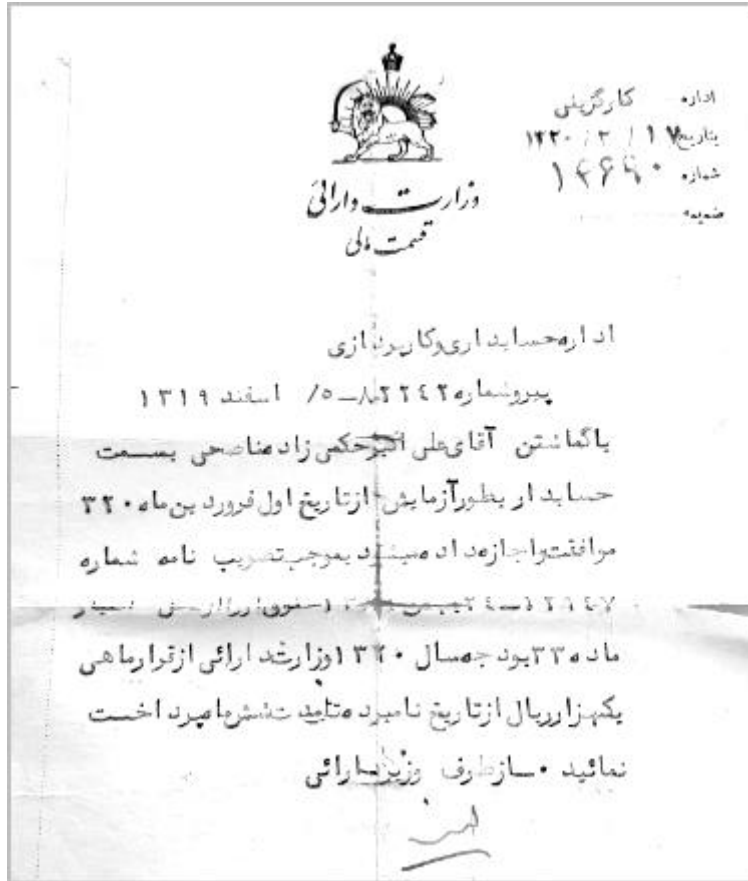 اداره کارگزینی
بتاریخ ۱۷ / ۲ / ۱۳۲۰
شماره ۱۴۶۹۰
ضمیمه
وزارت دارائی
قسمت مالی
اداره حسابداری و کارپردازی
پیرو شماره ۸۲۲۴۲-۵/ اسفند ۱۳۱۹
با گماشتن آقای علی اکبر حکمی زاده مناصحی بسمت
حسابدار بطور آزمایش از تاریخ اول فروردین ماه ۳۲۰
موافقت و اجازه داده میشود بموجب تصویب نامه شماره
ماده ۳۳ بودجه سال ۱۳۲۰ وزارت دارائی از قرار ماهی
یکهزار ریال از تاریخ نامبرده تا مدت شش ماه پرداخت
نمائید ۰ از طرف وزیر دارائی